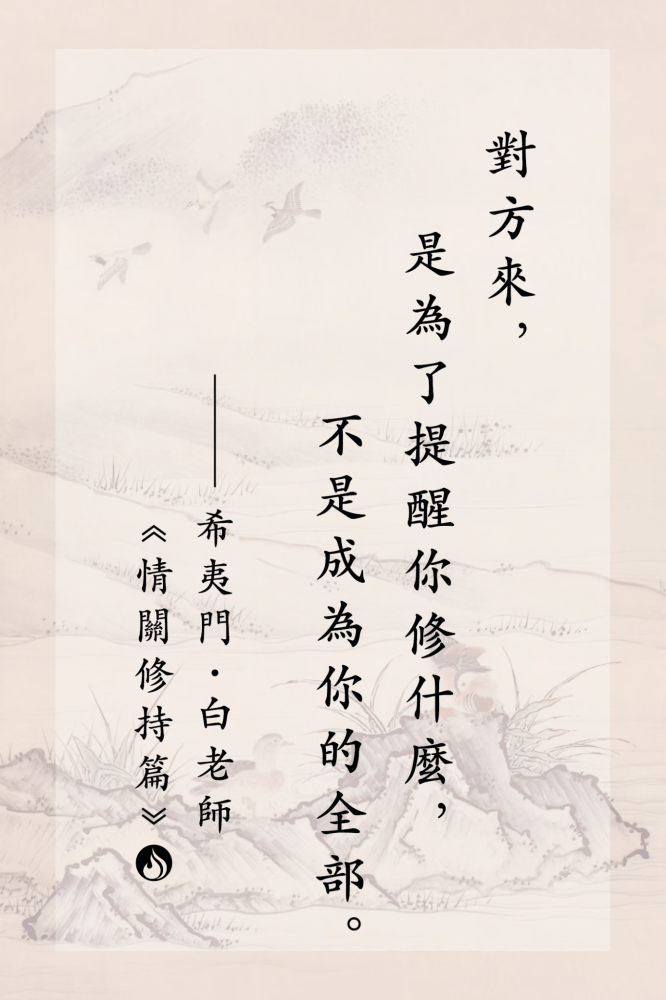 對方來，
是為了提醒你修什麼，
不是成為你的全部。
——希夷門·白老師
《情關修持篇》